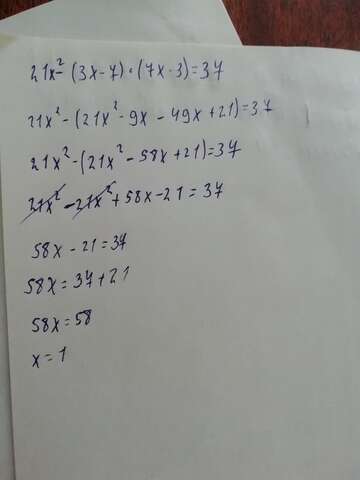 21x²-(3x-7)·(7x-3)=37
21x²-(21x²-9x-49x+21)=37
21x²-(21x²-58x+21)=37
21x²-21x²+58x-21=37
58x-21=37
58x=37+21
58x=58
x=1